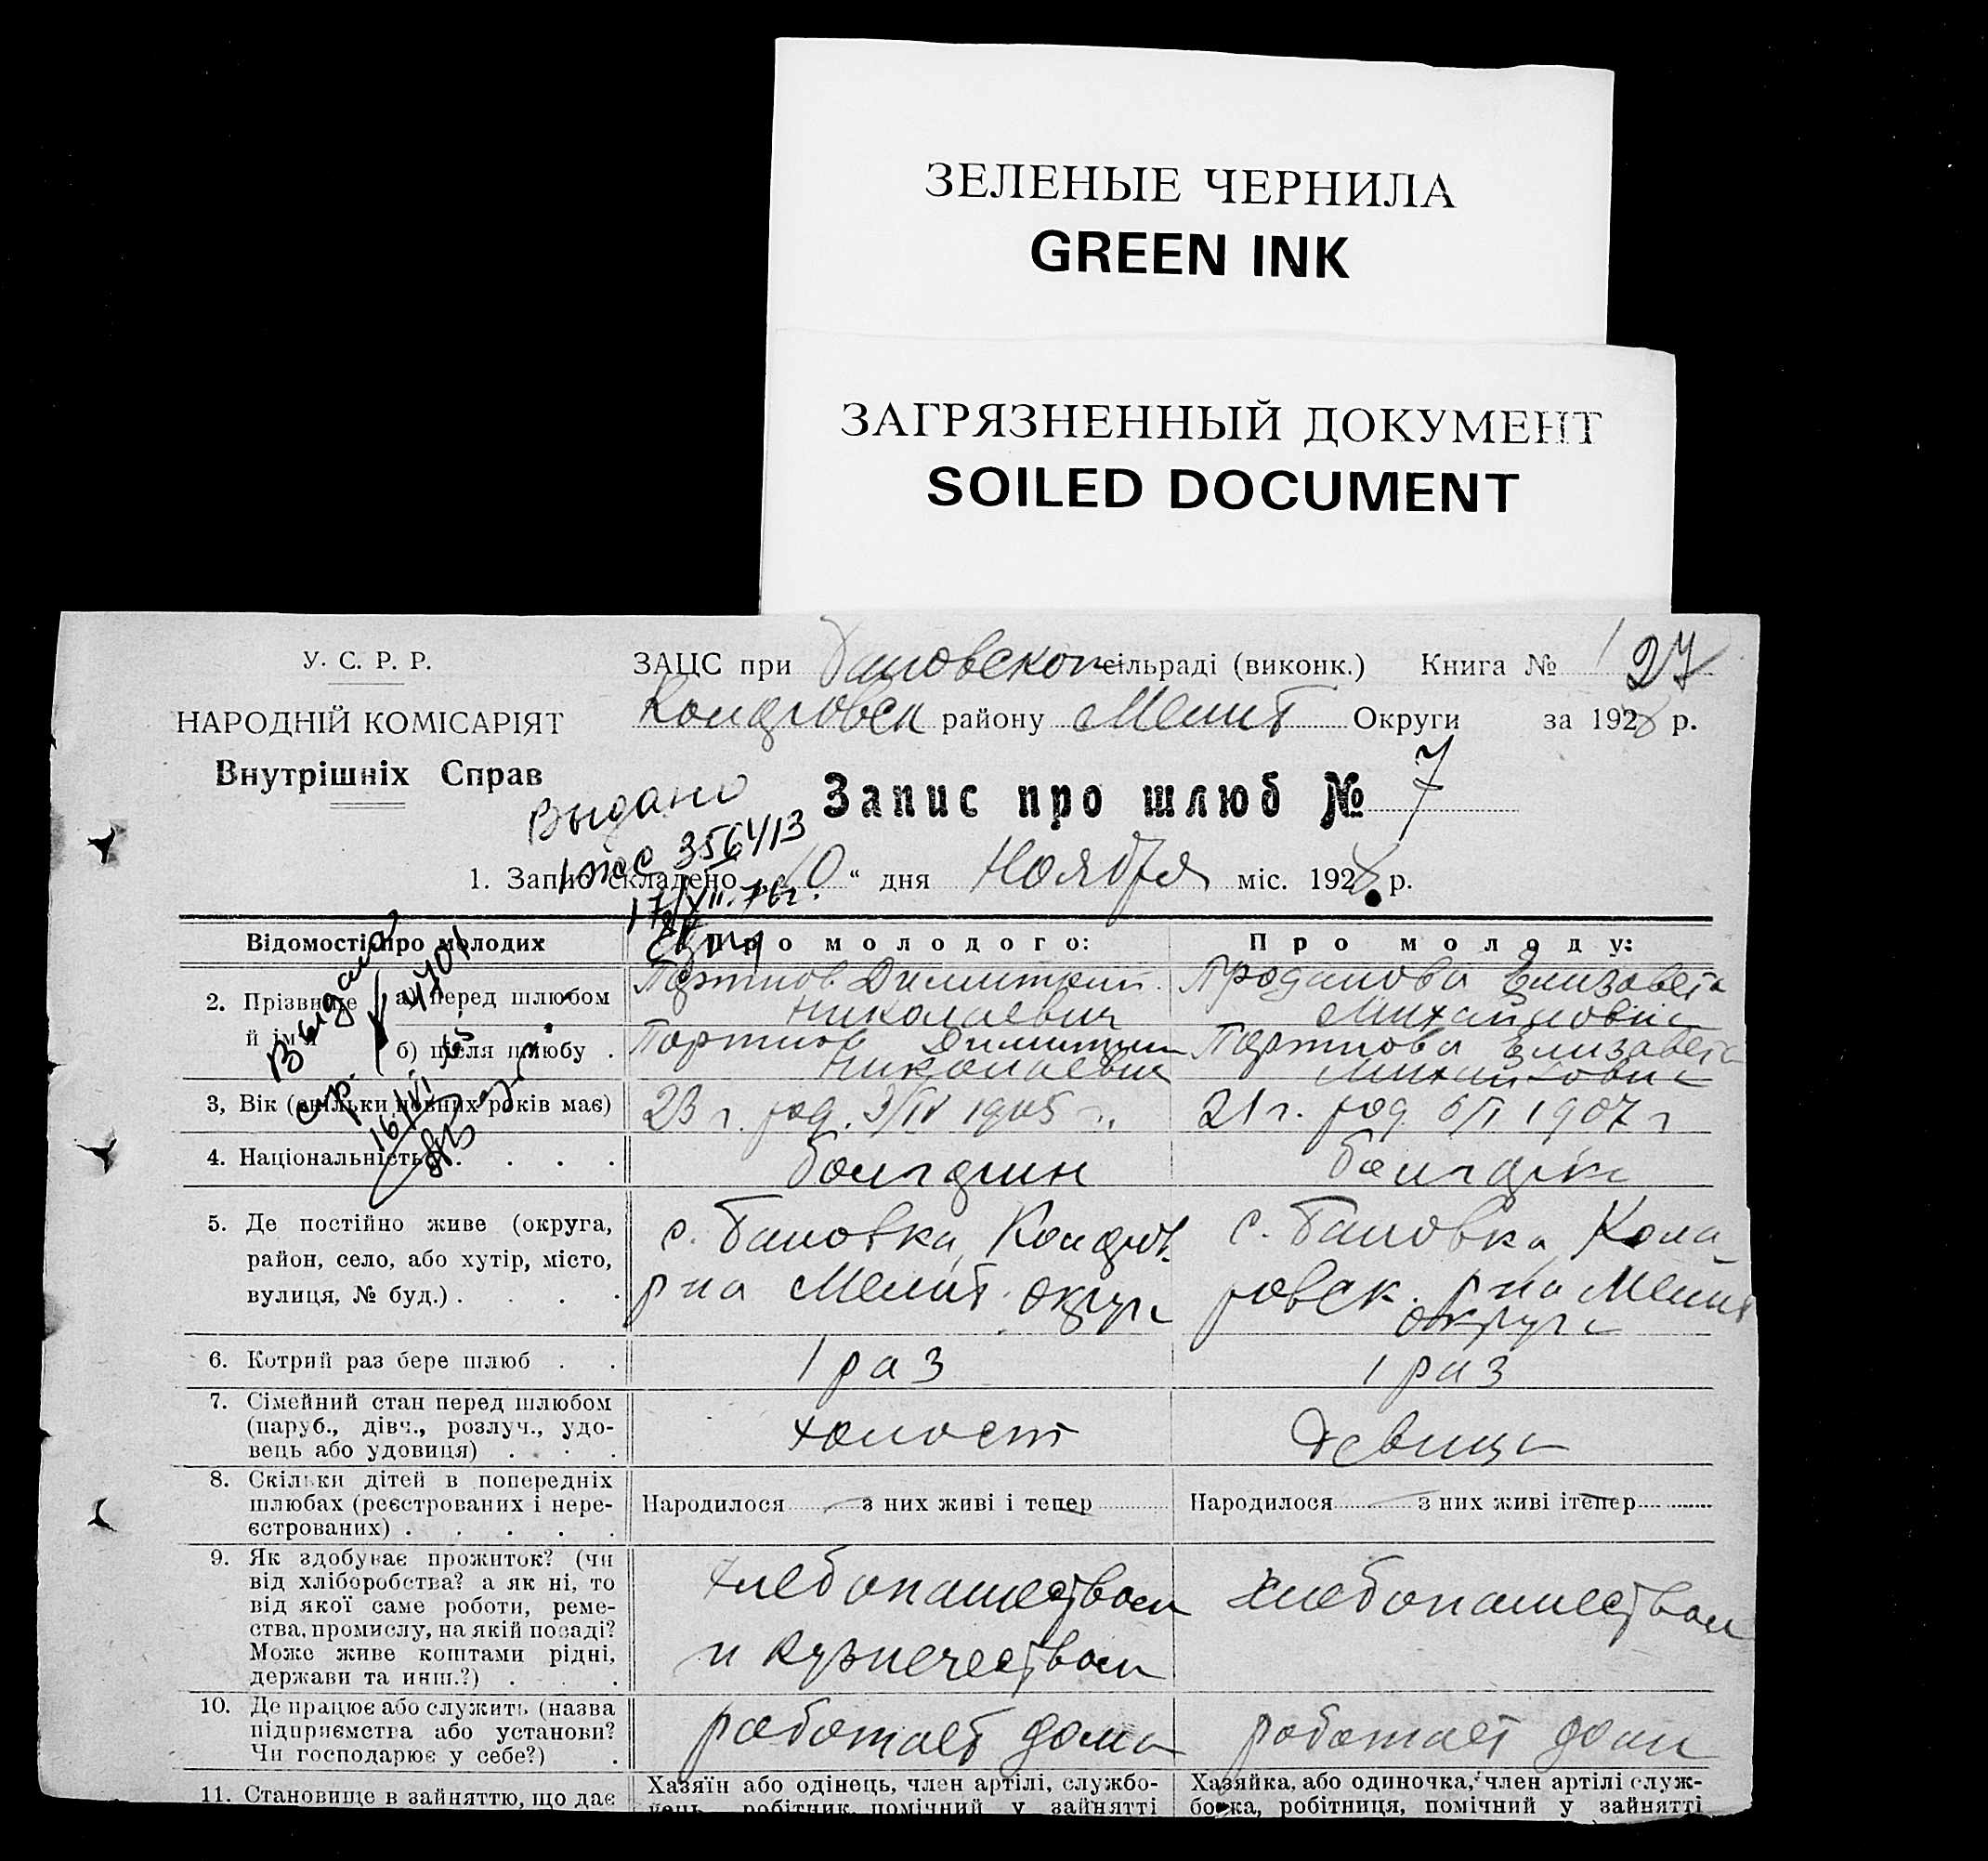 ЗЕЛЕНЫЕ ЧЕРНИЛА
GREEN INK
ЗАГРЯЗНЕННЫЙ ДОКУМЕНТ
SOILED DOCUMENT
У. С. Р. Р.
НАРОДНІЙ КОМІСАРІЯТ
Внутрішніх Справ
ЗАЦС при Бановском сільраді (виконк.) Книга № 27
району Мелит Округи за 1928 р.
Запис про шлюб № 7
Выдано
356413
1. Запис складено 10 " дня Ноября міс. 1928 р.
17/XII.76г.
Відомості про молодих
Про молодого:
Про молоду:
Выдана
2. Прізвище й ім'я
а) перед шлюбом
Портнов Димитрий Николаевич
Проданова Елизавета Михайловна
б) після шлюбу .
Портнов Димитрий Николаевич
Портнова Елизавета Михайловна
3, Вік (скільки повних років має)
23 г. род. 3/IV 1905 г.
21 г. род 6/I 1907 г
4. Національність . . . . .
болгарин
болгарка
5. Де постійно живе (округа, район, село, або хутір, місто, вулиця, № буд.) . . . .
с. Бановка, Коларов. р на Мелит. округа
с. Бановка, Коларовск. р на Мелит округа
6. Котрий раз бере шлюб . .
1 раз
1 раз
7. Сімейний стан перед шлюбом
(паруб., дівч., розлуч., удо-
вець або удовиця) . . .
холост
девица
8. Скільки дітей в попередніх
шлюбах (реєстрованих і нере-
єстрованих) . . . . .
Народилося з них живі і тепер
Народилося з них живі і тепер
9. Як здобуває прожиток? (чи
від хліборобства? а як ні, то
від якої саме роботи, реме-
ства, промислу, на якій посаді?
Може живе коштами рідні,
держави та инш.?) . . .
хлебопашеством
и кузнечеством
хлебопашеством
10. Де працює або служить (назва
підприємства або установи?
Чи господарює у себе?) .
работает дома
работает дома
11. Становище в зайняттю, що дає
Хазяїн або одінець, член артілі, службо-
вець, робітник, помічний у зайнятті
Хазяйка, або одиночка, член артілі служ-
бовка, робітниця, помічний у зайнятті